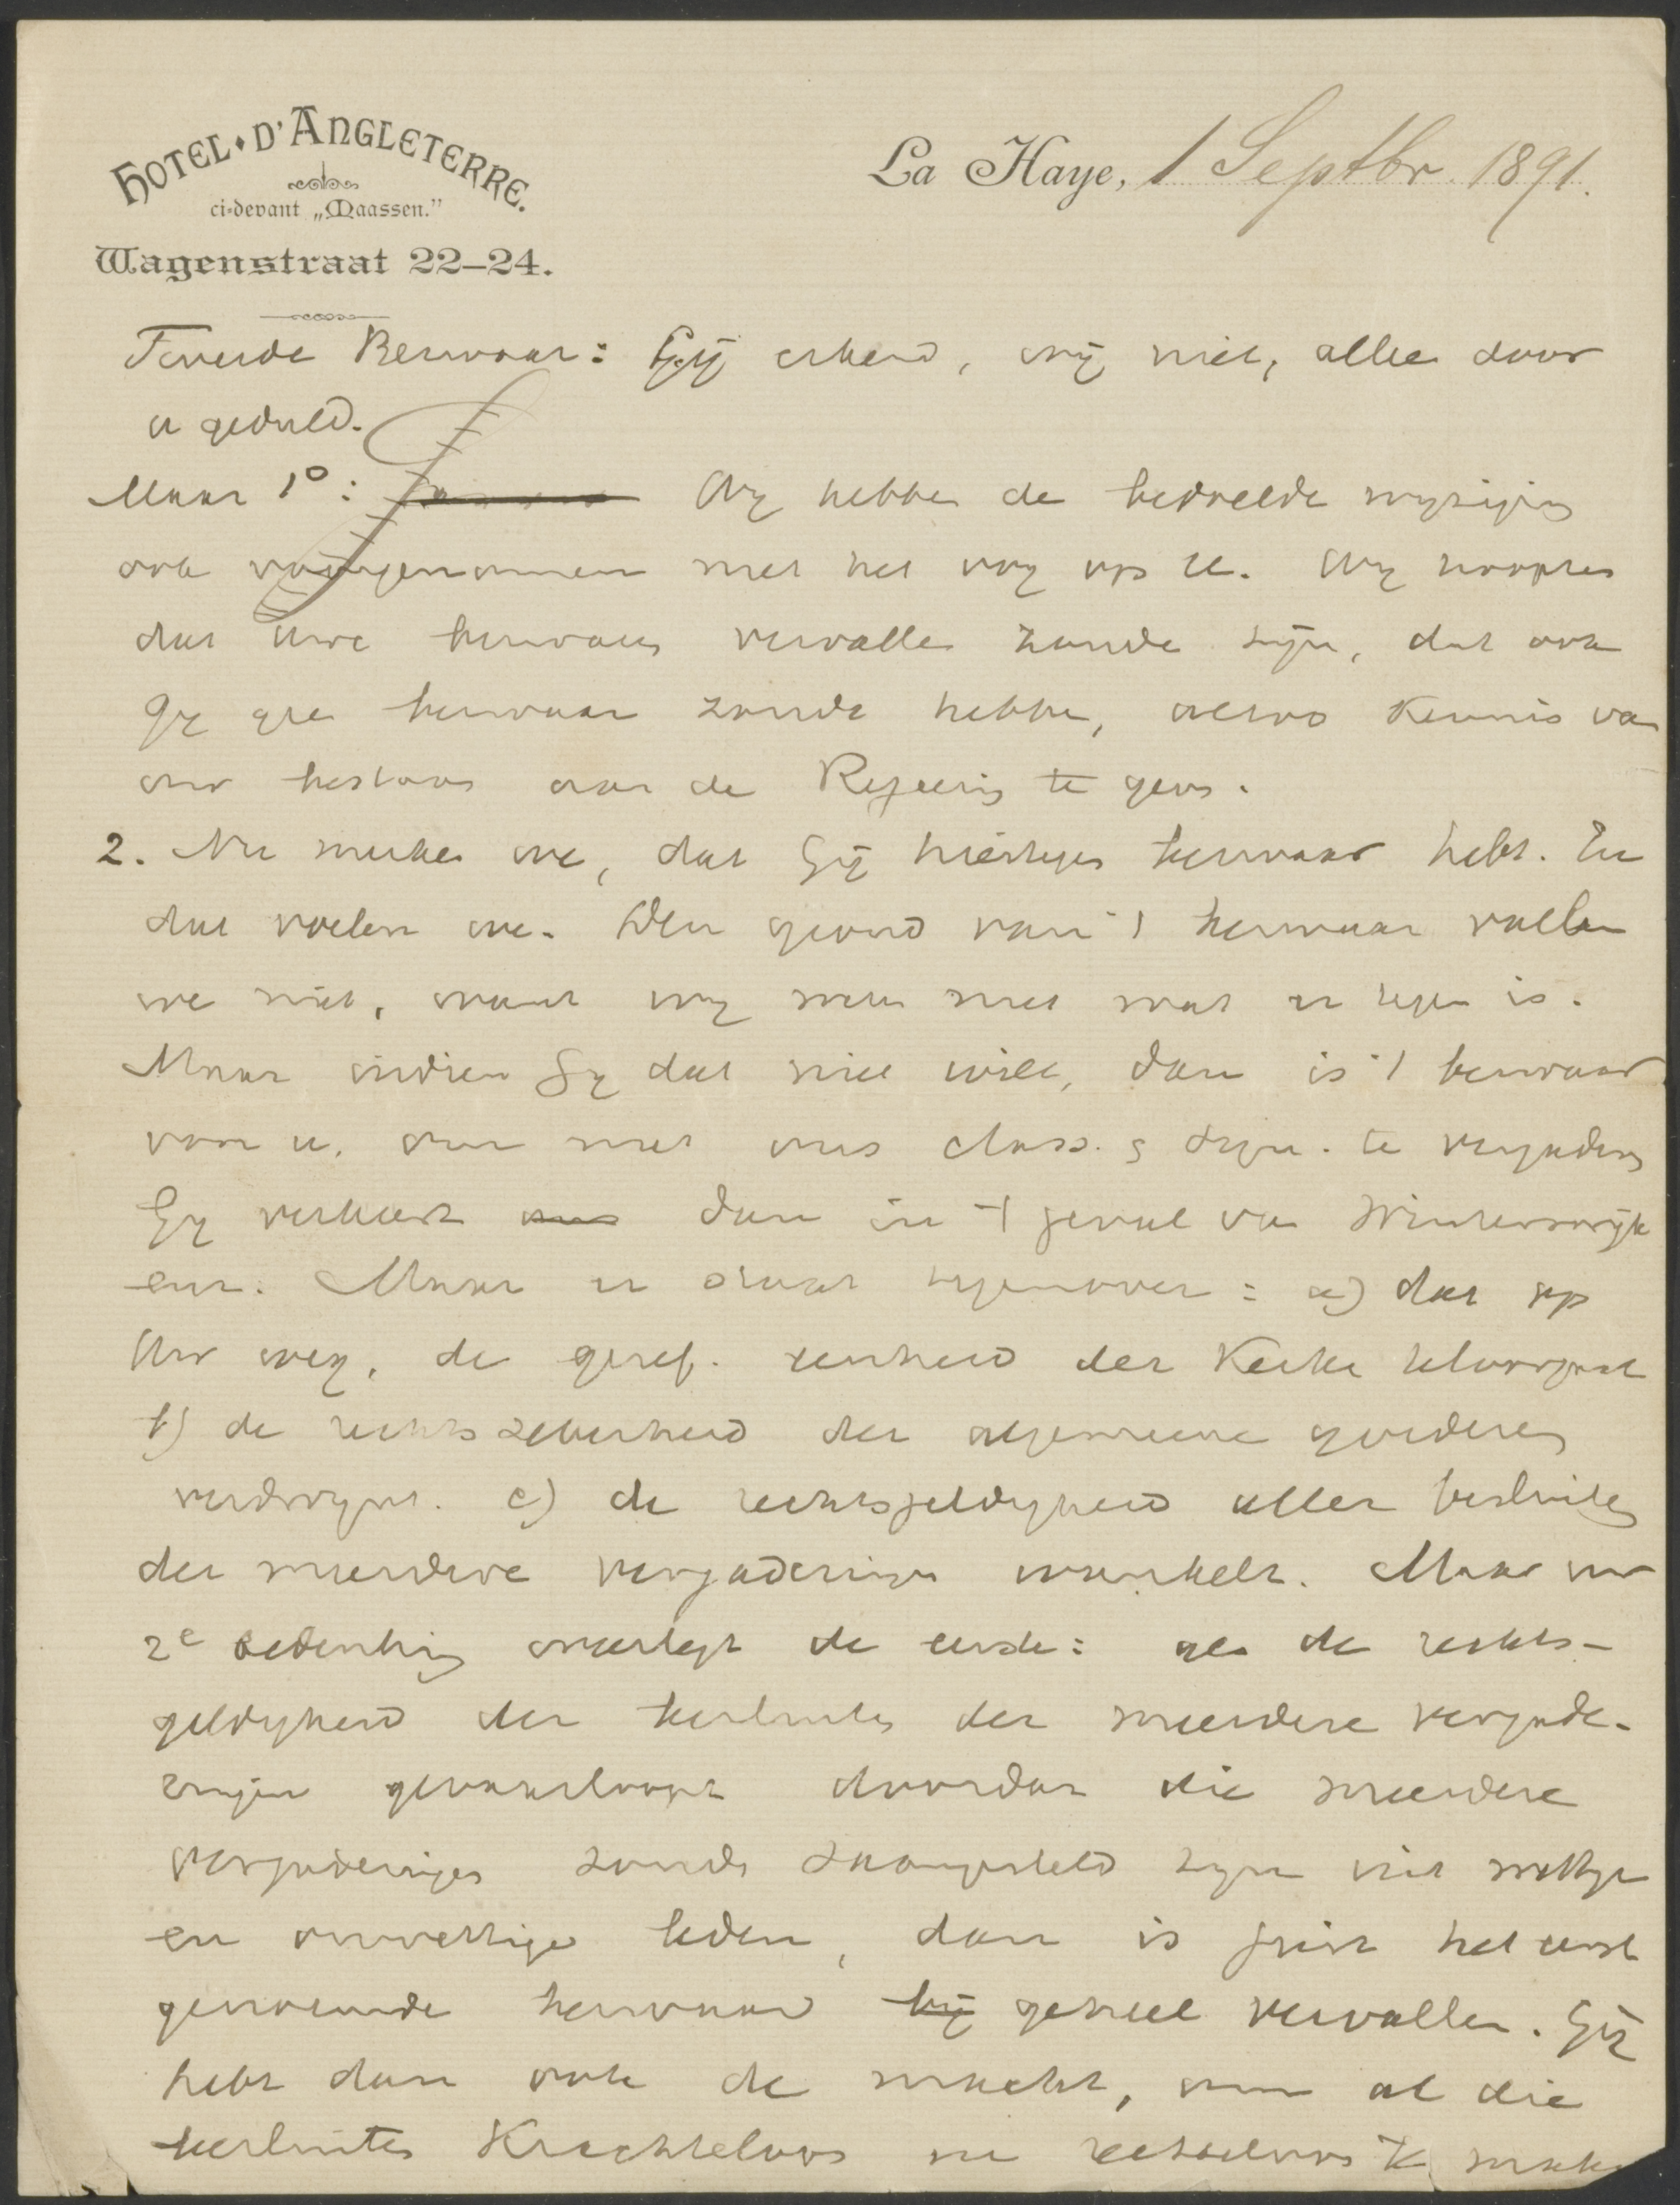 HOTEL D'ANGLETERRE.
ci-devant „Maassen."
Wagenstraat 22–24.
La Haye, 1 Septbr. 1891.
Tweede Bezwaar: Gij erkend, wij niet, alleen door
u geduld.
Maar 1°: Wij hebben de bedoelde wijziging
ook voorgenomen met het oog op U. Wij hoopten
dat Uwe bezwaren vervallen zoude zijn, dat ook
Gij geen bezwaar zoude hebben, alsoo Kennis van
ons bestaan aan de Regeering te geven.
2. Nu merken we, dat Gij hiertegen bezwaar hebt. En
dat voelen we. Den grond van 't bezwaar vatten
we niet, want wij weten niet wat er tegen is.
Maar indien Gij dat niet wilt, dan is 't bezwaar
voor u, om met ons class. & syn. te vergaderen
Gij verkeert dan in 't geval van Winterswijk
enz. Maar er staat tegenover: a) dat op
Uw weg, de geref. eenheid der Kerken teloorgaat
b) de rechtszekerheid der algemeene goederen
verdwijnt. c) de rechtsgeldigheid aller besluiten
der meerdere vergaderingen wankelt. Maar uw
2e bedenking weerlegt de eerste: als de rechts-
geldigheid der besluiten der meerdere vergade-
ringen gevaar loopt doordat die meerdere
vergaderingen zoude zaamgesteld zijn uit wettige
en onwettige leden, dan is juist het eerst
genoemde bezwaar bij geheel vervallen. Gij
hebt dan ook de macht, om al die
besluiten Krachteloos en rechteloos te maken